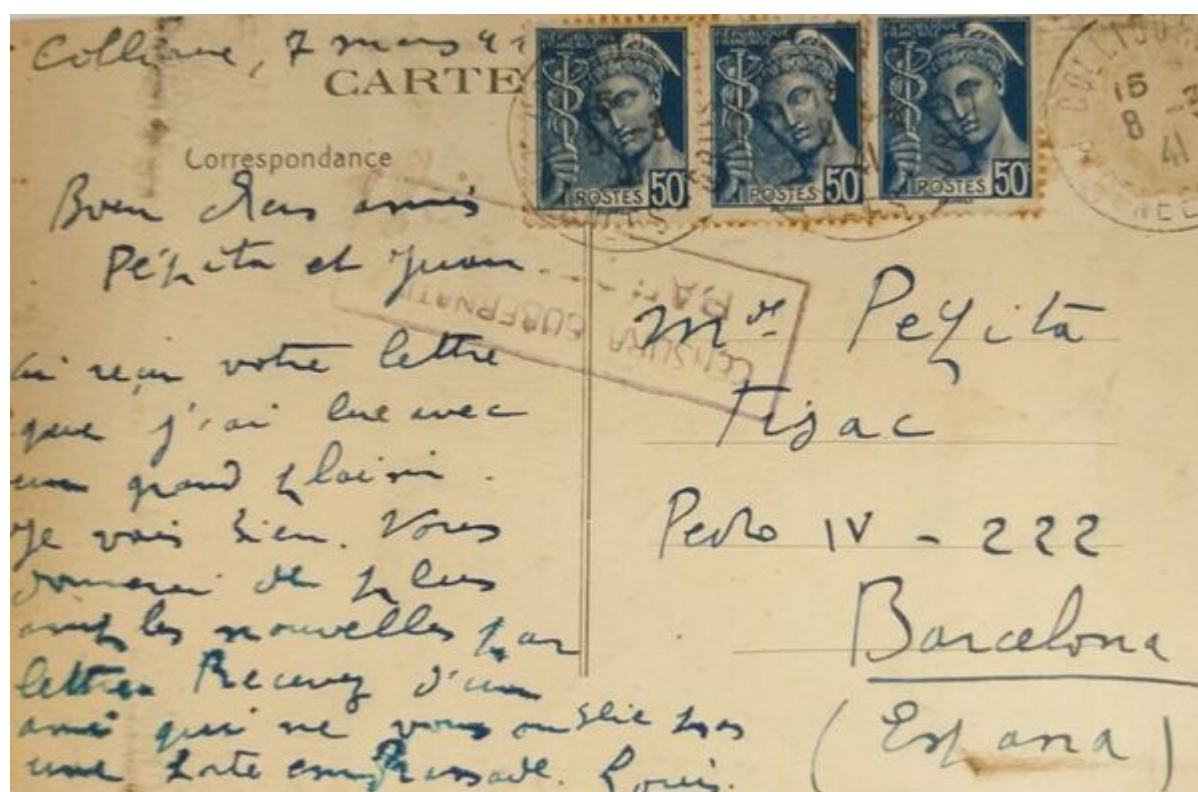 Collioure, 7 mars 41
CARTE
Correspondance
Bien chers amis
Pépita et Juan.
ai reçu votre lettre
que j'ai lue avec
un grand plaisir.
Je vais bien. Vous
donnerai de plus
amples nouvelles par
lettre. Recevez d'un
ami qui ne vous oublie pas
une forte embrassade. Louis.
RÉPUBLIQUE
FRANÇAISE
POSTES 50
RÉPUBLIQUE
FRANÇAISE
POSTES 50
RÉPUBLIQUE
FRANÇAISE
POSTES 50
COLLIOURE
15
8
41
CENSURA GUBERNATI
Mme Pepita
Tisac
Pedro IV - 222
Barcelona
(España)